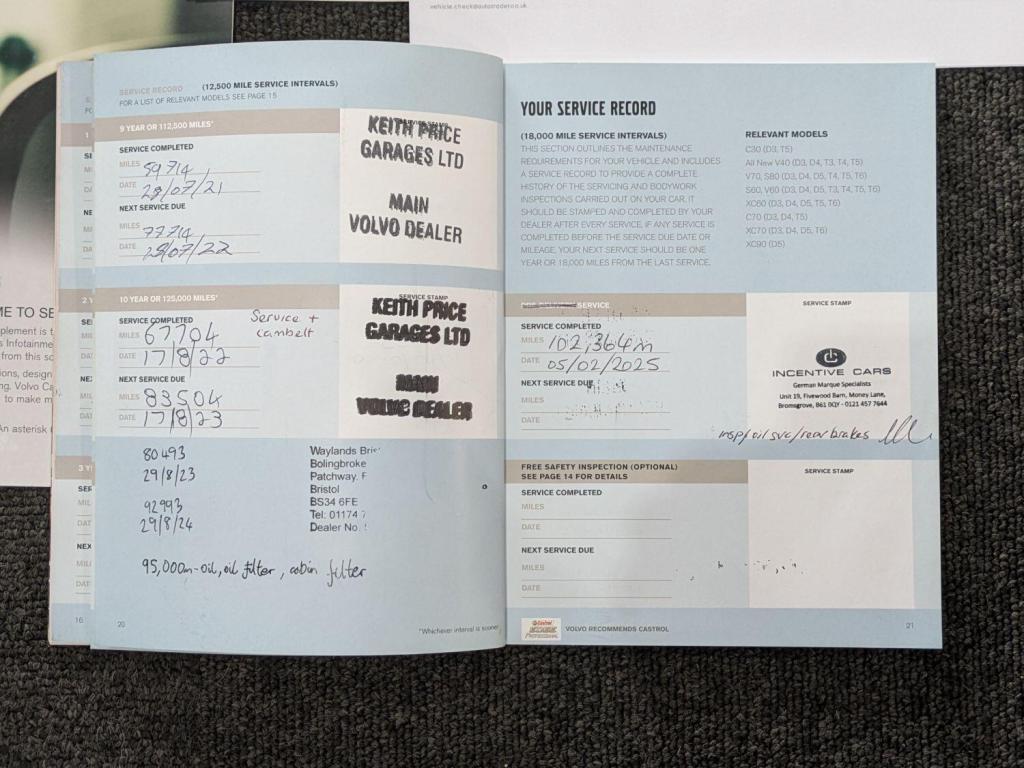 vehicle.check@autotrader.co.uk
ME TO SE
plement is t
s Infotainme
from this so
ions, design
ng. Volvo Ca
to make m
An asterisk (
16
SERVICE RECORD (12,500 MILE SERVICE INTERVALS)
FOR A LIST OF RELEVANT MODELS SEE PAGE 15
9 YEAR OR 112,500 MILES*
SERVICE COMPLETED
MILES 59714
DATE 28/07/21
NEXT SERVICE DUE
MILES 77714
DATE 28/07/22
KEITH PRICE
GARAGES LTD
MAIN
VOLVO DEALER
10 YEAR OR 125,000 MILES*
SERVICE STAMP
SERVICE COMPLETED
MILES 67704
DATE 17/8/22
Service +
cambelt
NEXT SERVICE DUE
MILES 83504
DATE 17/8/23
KEITH PRICE
GARAGES LTD
MAIN
VOLVO DEALER
80493
29/8/23
92993
29/8/24
Waylands Bri
Bolingbroke
Patchway.
Bristol
BS34 6FE
Tel: 01174
Dealer No.
95,000m-oil, oil filter, cabin filter
20
*Whichever interval is sooner
YOUR SERVICE RECORD
(18,000 MILE SERVICE INTERVALS)
THIS SECTION OUTLINES THE MAINTENANCE
REQUIREMENTS FOR YOUR VEHICLE AND INCLUDES
A SERVICE RECORD TO PROVIDE A COMPLETE
HISTORY OF THE SERVICING AND BODYWORK
INSPECTIONS CARRIED OUT ON YOUR CAR. IT
SHOULD BE STAMPED AND COMPLETED BY YOUR
DEALER AFTER EVERY SERVICE. IF ANY SERVICE IS
COMPLETED BEFORE THE SERVICE DUE DATE OR
MILEAGE, YOUR NEXT SERVICE SHOULD BE ONE
YEAR OR 18,000 MILES FROM THE LAST SERVICE.
RELEVANT MODELS
C30 (D3, T5)
All New V40 (D3, D4, T3, T4, T5)
V70, S80 (D3, D4, D5, T4, T5, T6)
S60, V60 (D3, D4, D5, T3, T4, T5, T6)
XC60 (D3, D4, D5, T5, T6)
C70 (D3, D4, T5)
XC70 (D3, D4, D5, T6)
XC90 (D5)
SERVICE
SERVICE COMPLETED
MILES 102,364m
DATE 05/02/2025
NEXT SERVICE DUE
MILES
DATE
SERVICE STAMP
INCENTIVE CARS
German Marque Specialists
Unit 19, Fivewood Barn, Money Lane,
Bromsgrove, B61 0QY - 0121 457 7644
insp/oil svc/rear brakes
FREE SAFETY INSPECTION (OPTIONAL)
SEE PAGE 14 FOR DETAILS
SERVICE COMPLETED
MILES
DATE
NEXT SERVICE DUE
MILES
DATE
SERVICE STAMP
Castrol
EDGE
Professional
VOLVO RECOMMENDS CASTROL
21